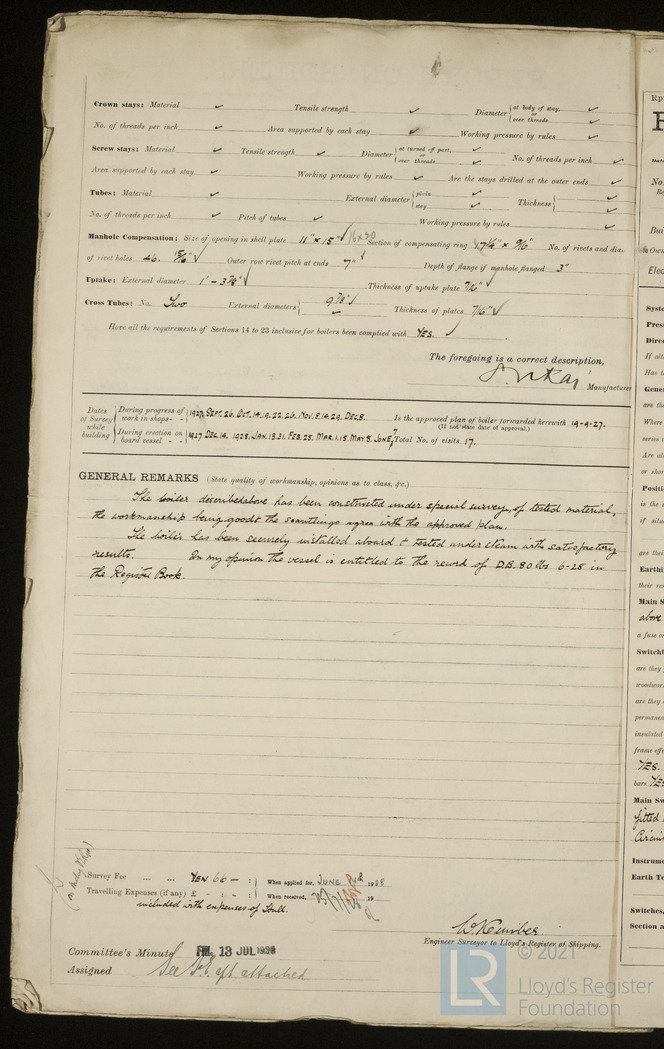 Crown stays: Material ✓ Tensile strength ✓ Diameter { at body of stay, or over threads. ✓ ✓
No. of threads per inch ✓ Area supported by each stay ✓ Working pressure by rules ✓
Screw stays: Material ✓ Tensile strength ✓ Diameter { at turned off part, or over threads. ✓ ✓ No. of threads per inch ✓
Area supported by each stay ✓ Working pressure by rules ✓ Are the stays drilled at the outer ends ✓
Tubes: Material ✓ External diameter { plain ✓ stay ✓ Thickness { ✓ ✓
No. of threads per inch ✓ Pitch of tubes ✓ Working pressure by rules ✓
Manhole Compensation: Size of opening in shell plate 11" x 15" ✓ 16x20 Section of compensating ring No. of rivets and dia
of rivet holes 46. 15/16" ✓ Outer row rivet pitch at ends 7" ✓ Depth of flange if manhole flanged 3"
Uptake: External diameter 1' - 3 7/8" ✓ Thickness of uptake plate 7/16" ✓
Cross Tubes: No. Two External diameters { 9 7/8" ✓ Thickness of plates 7/16" ✓
Have all the requirements of Sections 14 to 23 inclusive for boilers been complied with YES. ✓
The foregoing is a correct description,
Manufacturer
Dates of Survey while building
During progress of work in shops - - 1927. SEPT. 26. OCT. 14. 19. 22. 26. NOV. 8. 14. 29. DEC. 8.
Is the approved plan of boiler forwarded herewith 19-9-27.
(If not state date of approval.)
During erection on board vessel - - 1927 DEC. 14. 1928. JAN. 13. 31. FEB. 28. MAR. 1. 15 MAY 8. JUNE 7
Total No. of visits 17.
GENERAL REMARKS (State quality of workmanship, opinions as to class, &c.)
The boiler described above has been constructed under special survey, of tested material,
the workmanship being good & the scantlings agree with the approved plan.
The boiler has been securely installed aboard & tested under steam with satisfactory
results. In my opinion the vessel is entitled to the record of D.B. 80 lbs 6-28 in
the Register Book.
Survey Fee ... ... YEN 66 - : When applied for, JUNE 1928
Travelling Expenses (if any) £ - : - : When received, 19
included with expenses of Hull.
W. Kimber
Engineer Surveyor to Lloyd's Register of Shipping.
Committee's Minute FRI. 13 JUL 1928
Assigned See attached
© 2021
LR
Lloyd's Register
Foundation
Rp
No.
Re
Bui
Own
Elec
Syste
Press
Direc
If all
Has t
Gener
are the
Where
series i
Are al
or shor
Positi
is the
if situ
are thei
Earthi
their res
Main S
above
a fuse on
Switchb
are they
woodwor
are they
permanen
insulated
frame effe
YES.
bars YES
Main Sw
fitted
Circui
Instrume
Earth Te
Switches,
Section a